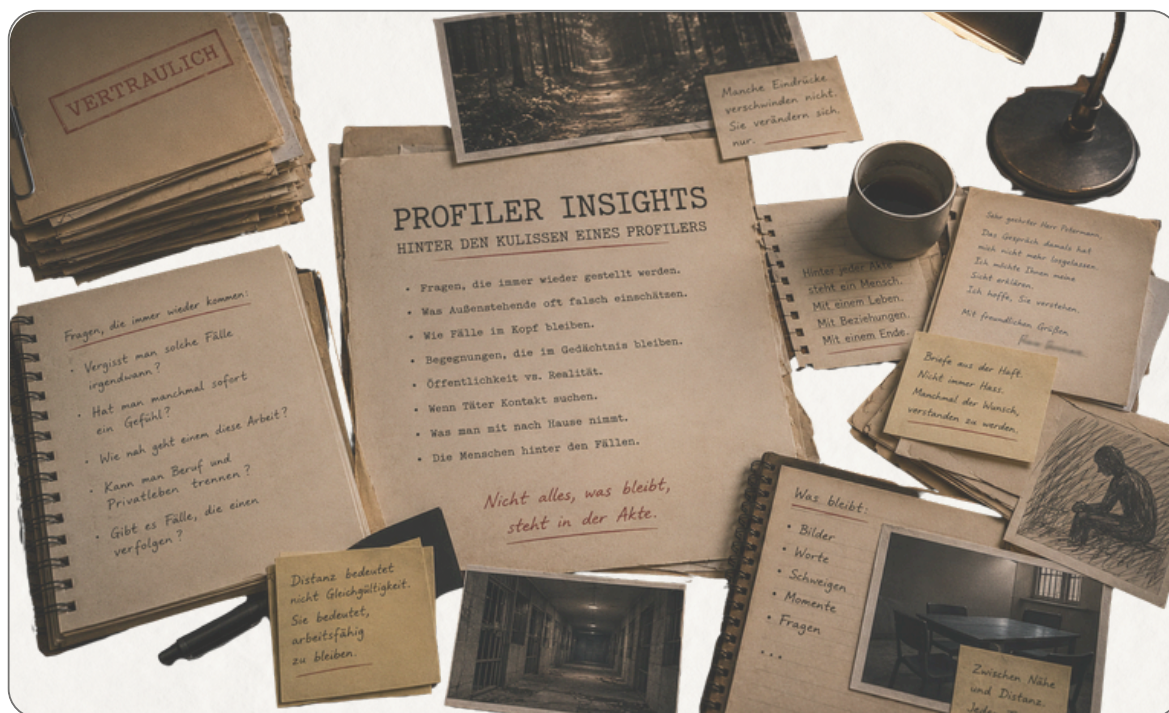 VERTRAULICH
Manche Eindrücke
verschwinden nicht.
Sie verändern sich.
nur.
PROFILER INSIGHTS
HINTER DEN KULISSEN EINES PROFILERS
• Fragen, die immer wieder gestellt werden.
• Was Außenstehende oft falsch einschätzen.
• Wie Fälle im Kopf bleiben.
• Begegnungen, die im Gedächtnis bleiben.
• Öffentlichkeit vs. Realität.
• Wenn Täter Kontakt suchen.
• Was man mit nach Hause nimmt.
• Die Menschen hinter den Fällen.
Nicht alles, was bleibt,
steht in der Akte.
Fragen, die immer wieder kommen:
• Vergisst man solche Fälle
irgendwann?
• Hat man manchmal sofort
ein Gefühl?
• Wie nah geht einem diese Arbeit?
• Kann man Beruf und
Privatleben trennen?
• Gibt es Fälle, die einen
verfolgen?
Distanz bedeutet
nicht Gleichgültigkeit.
Sie bedeutet,
arbeitsfähig
zu bleiben.
Hinter jeder Akte
steht ein Mensch.
Mit einem Leben.
Mit Beziehungen.
Mit einem Ende.
Sehr geehrter Herr Petermann,
Das Gespräch damals hat
mich nicht mehr losgelassen.
Ich möchte Ihnen meine
Sicht erklären.
Ich hoffe, Sie verstehen.
Mit freundlichen Grüßen
Briefe aus der Haft.
Nicht immer Hass.
Manchmal der Wunsch,
verstanden zu werden.
Was bleibt:
• Bilder
• Worte
• Schweigen
• Momente
• Fragen
...
Zwischen Nähe
und Distanz.